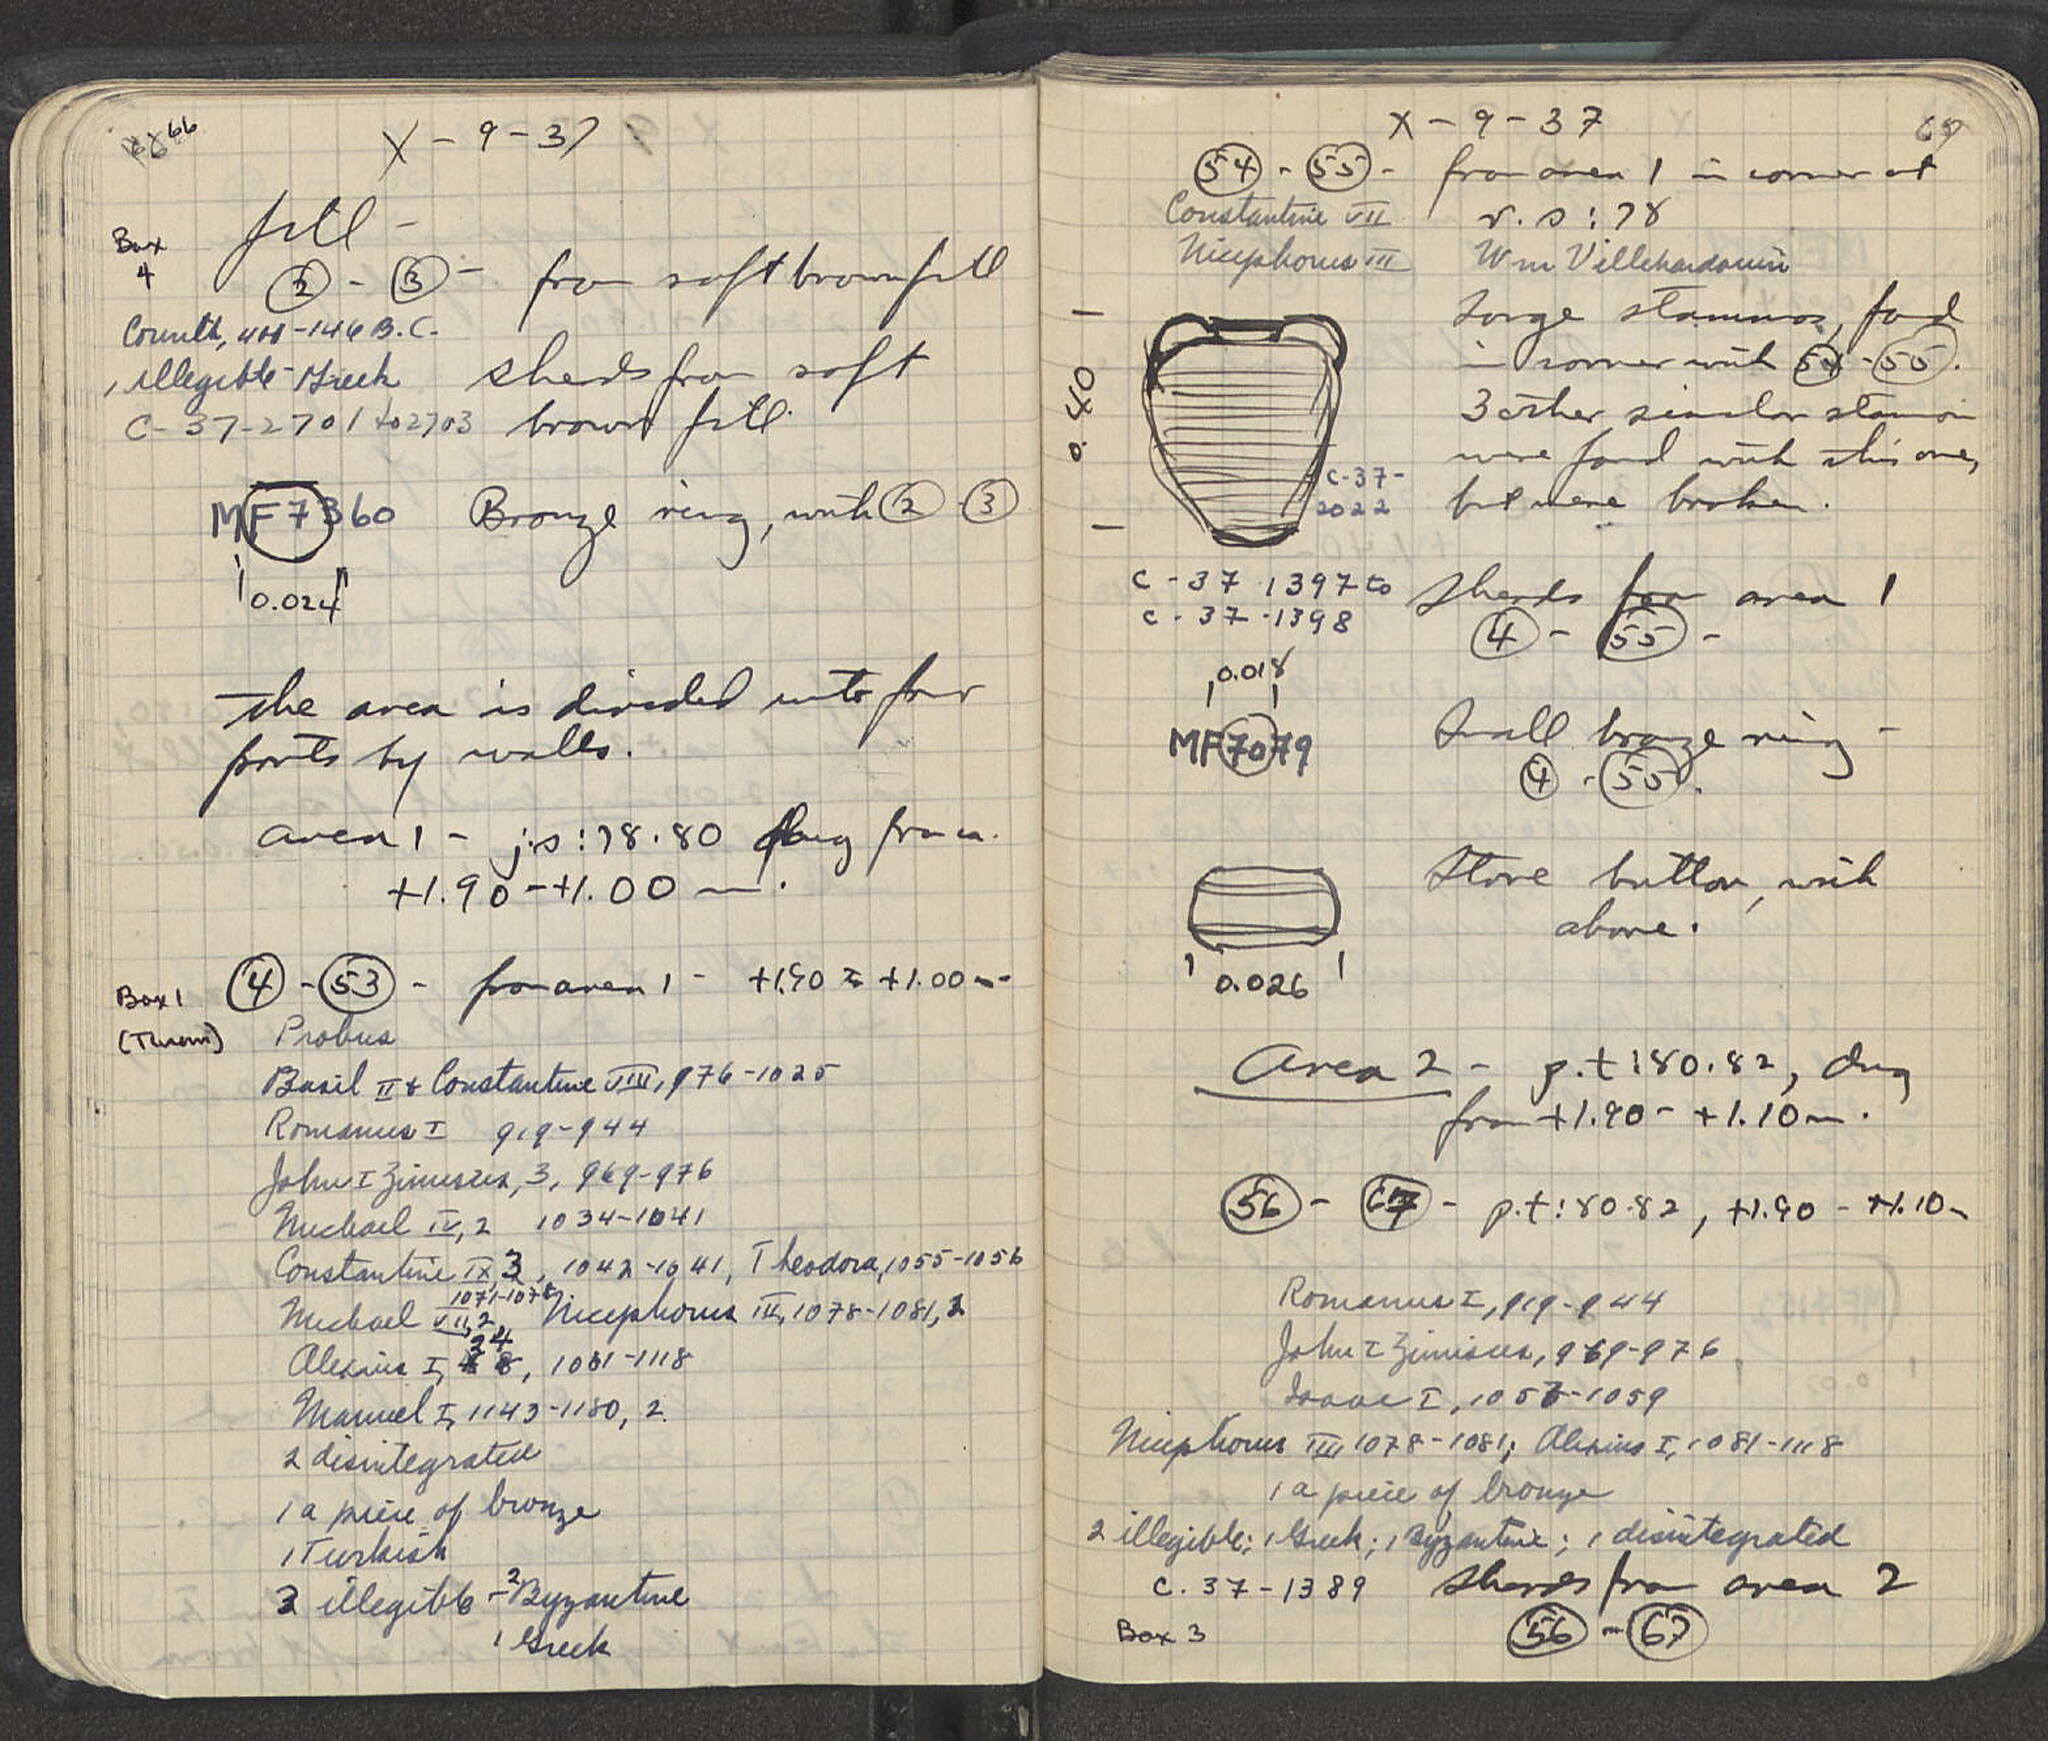 66
X - 9 - 37
fill -
Box
4
② - ③ - from soft brown fill
Corinth, 400-146 B.C.
1 illegible - Greek
sherds from soft
C-37-2701 to 2703
brown fill.
MF7360
Bronze ring, with ② ③
0.024
The area is divided into four
parts by walls.
area 1 - j.s:78.80 dug from
+1.90 - +1.00 m.
Box 1
④ - ㊼ - from area 1 - +1.90 to +1.00 m
Probus
Basil II & Constantine VIII, 976-1025
Romanus I 919-944
John I Zimisces, 3, 969-976
Michael IV, 2 1034-1041
Constantine IX, 3, 1042-1041, Theodora, 1055-1056
1071-1078
Michael VII, 2, Nicephorus III, 1078-1081, 2
24
Alexius I, 1081-1118
Manuel I, 1143-1180, 2.
2 disintegrated
1 a piece of bronze
1 Turkish
3 illegible - 2 Byzantine
1 Greek
X - 9 - 37
67
54 - 55 - from area 1 in corner at
Constantine VII
r.s:78
Nicephorus III
Wm Villehardouin
0.40
Large stamnos, found
in corner with 54-55.
3 other similar stamnoi
were found with this one,
but were broken.
C-37-
2022
C-37-1397 to
C-37-1398
Sherds from area 1
④ - 55 -
0.018
MF7079
Small bronze ring -
④ - 55.
Stone button, with
above.
0.026
Area 2 - p.t:80.82, dug
from +1.90 - +1.10 m.
56 - 67 - p.t:80.82, +1.90 - +1.10 m
Romanus I, 919-944
John I Zimisces, 969-976
Isaac I, 1057-1059
Nicephorus III, 1078-1081; Alexius I, 1081-1118
1 a piece of bronze
2 illegible; 1 Greek; 1 Byzantine; 1 disintegrated
C.37-1389
Sherds from area 2
Box 3
56 - 67